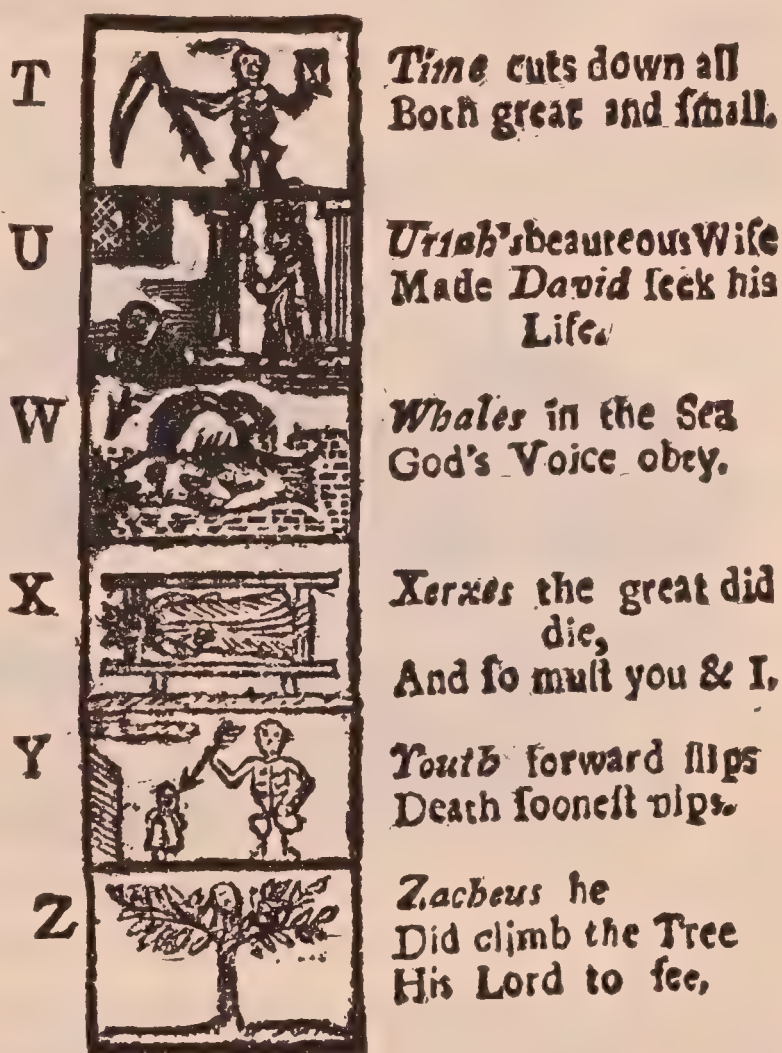 T
Time cuts down all
Both great and ſmall.
U
Uriah'sbeauteousWife
Made David ſeek his
Life.
W
Whales in the Sea
God's Voice obey.
X
Xerxes the great did
die,
And ſo muſt you & I.
Y
Youth forward ſlips
Death ſooneſt nips.
Z
Zacheus he
Did climb the Tree
His Lord to ſee,